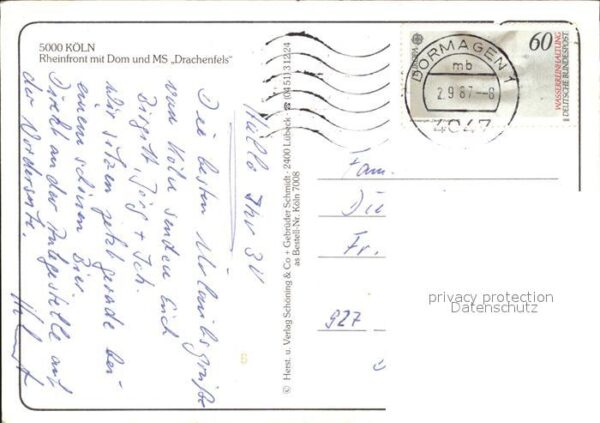 5000 KÖLN
Rheinfront mit Dom und MS „Drachenfels"
Hallo Ihr 3 !
Die besten Urlaubsgrüße
aus Köln senden Euch
Birgitt, Jörg + Ich.
Wir sitzen jetzt gerade bei
einem schönen Bier
Direkt an der Anlegestelle auf
der Vorderseite.
© Herst. u. Verlag Schöning & Co + Gebrüder Schmidt · 2400 Lübeck · ☎ (04 51) 3 12 24
as Bestell-Nr. Köln 7008
DORMAGEN 1
mb
2.9.87--6
4047
EUROPA
60
WASSERREINHALTUNG
DEUTSCHE BUNDESPOST
Fam.
Die
Fr.
927
privacy protection
Datenschutz
6